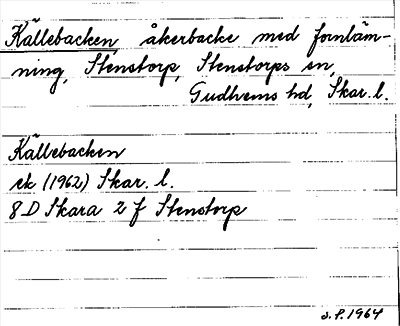 Källebacken, åkerbacke med fornläm-
ning, Stenstorp, Stenstorps sn,
Gudhems hd, Skar. l.
Källebacken
ek (1962) Skar. l.
8 D Skara 2 f Stenstorp
S.P. 1964